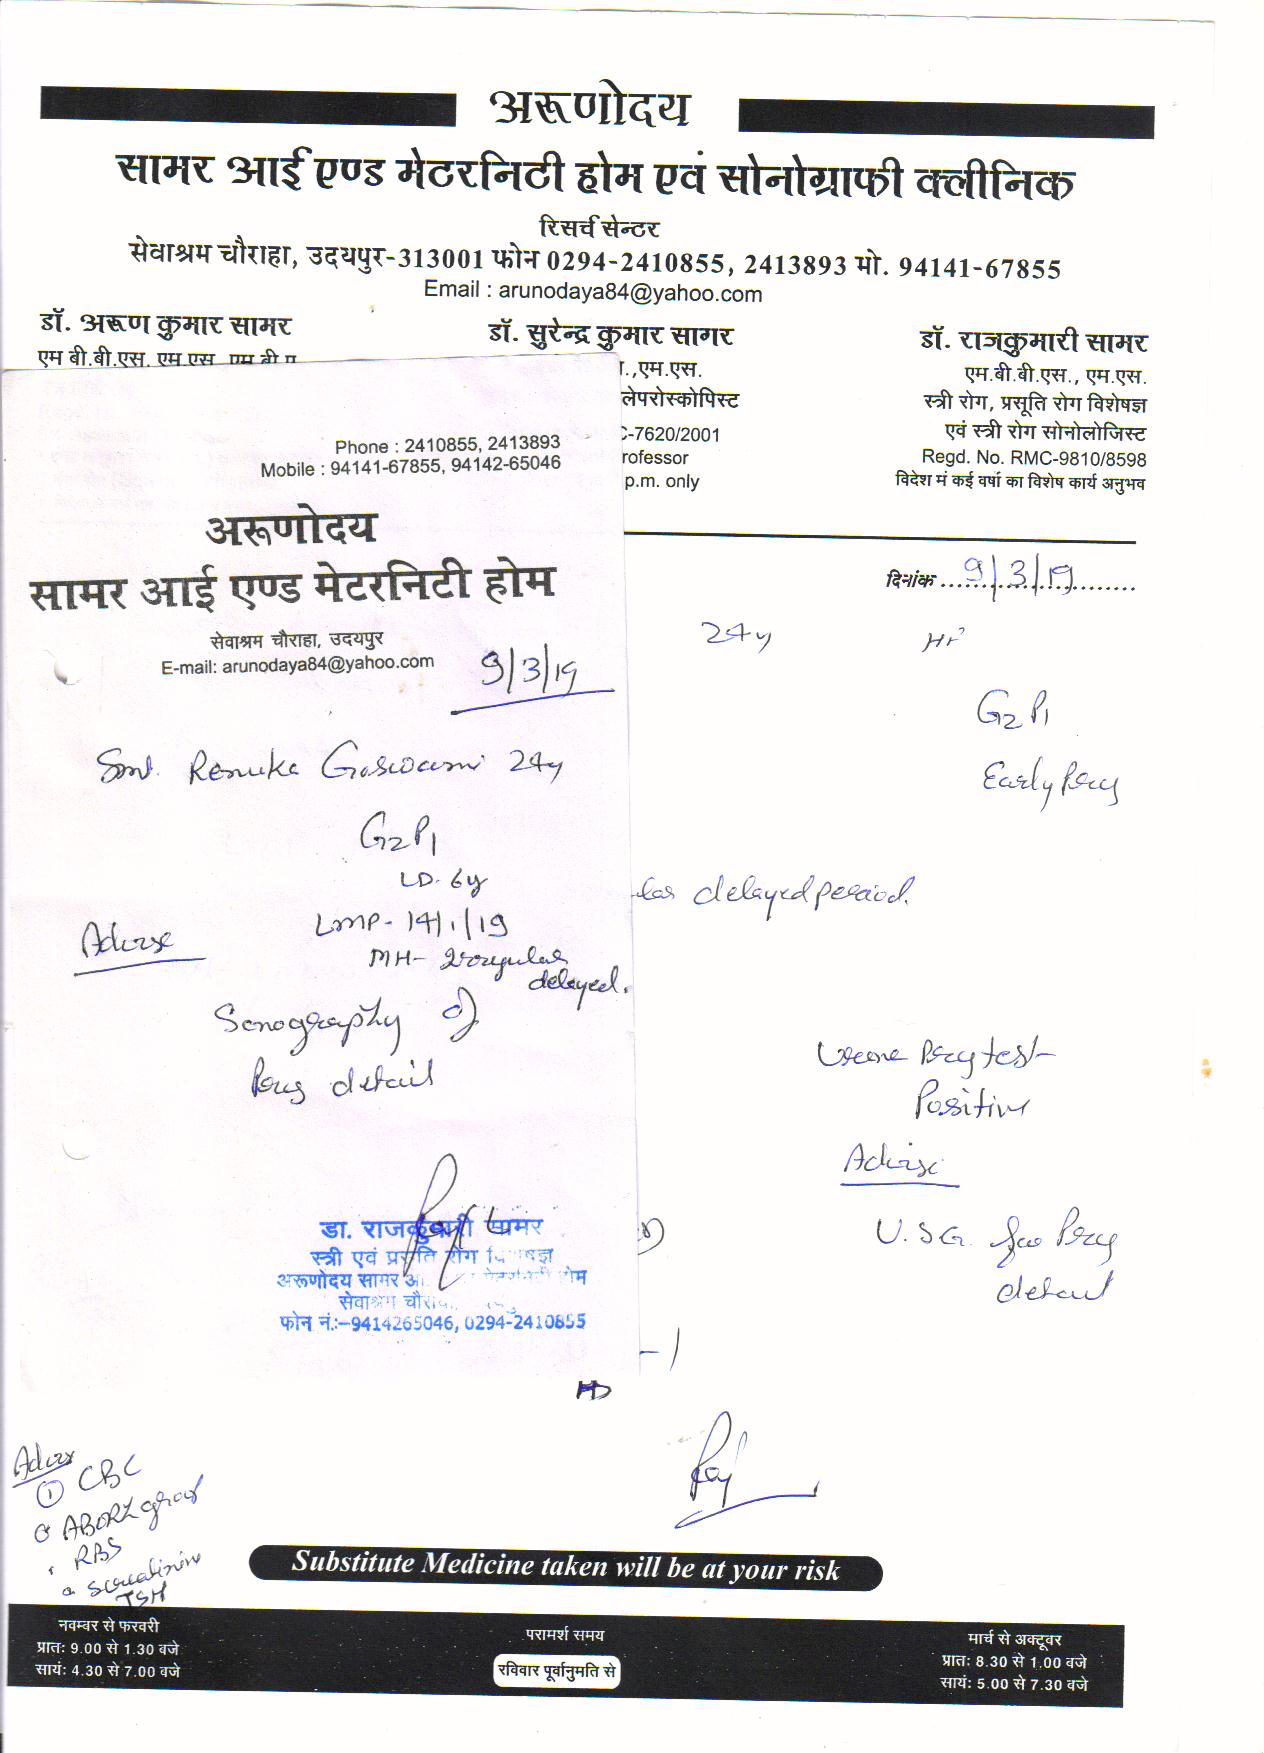 अरूणोदय
सामर आई एण्ड मेटरनिटी होम एवं सोनोग्राफी क्लीनिक
रिसर्च सेन्टर
सेवाश्रम चौराहा, उदयपुर-313001 फोन 0294-2410855, 2413893 मो. 94141-67855
Email : arunodaya84@yahoo.com
डॉ. अरूण कुमार सामर
एम बी.बी.एस. एम एस
डॉ. सुरेन्द्र कुमार सागर
.,एम.एस.
लेपरोस्कोपिस्ट
C-7620/2001
rofessor
p.m. only
डॉ. राजकुमारी सामर
एम.बी.बी.एस., एम.एस.
स्त्री रोग, प्रसूति रोग विशेषज्ञ
एवं स्त्री रोग सोनोलोजिस्ट
Regd. No. RMC-9810/8598
विदेश में कई वर्षों का विशेष कार्य अनुभव
Phone : 2410855, 2413893
Mobile : 94141-67855, 94142-65046
अरूणोदय
सामर आई एण्ड मेटरनिटी होम
सेवाश्रम चौराहा, उदयपुर
E-mail: arunodaya84@yahoo.com
9/3/19
Smt. Renuka Goswami 24y
G2P1
LD- 6y
LMP- 14/1/19
MH- Irregular
delayed.
Advise
Sonography of
Preg detail
डा. राजकुमारी सामर
स्त्री एवं प्रसूति रोग विशेषज्ञ
अरूणोदय सामर आ मेटरनिटी होम
सेवाश्रम चौरा
फोन नं.:-9414265046, 0294-2410855
दिनांक 9/3/19
24y
G2P1
Early Preg
lar delayed period.
Urine Preg test-
Positive
Advise
U.S.G. for Preg
detail
Advise
① CBC
ABORh group
RBS
S creatinine
TSH
Substitute Medicine taken will be at your risk
नवम्बर से फरवरी
प्रातः 9.00 से 1.30 बजे
सायंः 4.30 से 7.00 बजे
परामर्श समय
रविवार पूर्वानुमति से
मार्च से अक्टूबर
प्रातः 8.30 से 1.00 बजे
सायंः 5.00 से 7.30 बजे